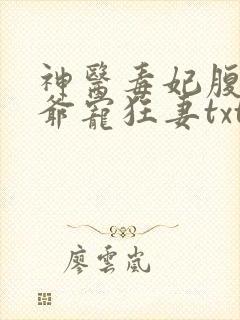 神醫毒妃腹
爺寵狂妻txt
廖雲嵐